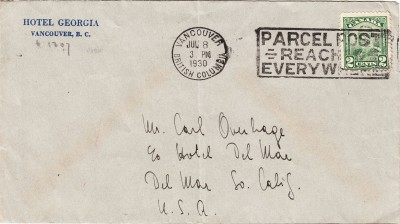 HOTEL GEORGIA
VANCOUVER, B. C.
VANCOUVER
8
3 PM
1930
BRITISH COLUMBIA
PARCEL POST
REACH
EVERYW
CANADA
2 CENTS 2
Mr. Carl Overhage
c/o Hotel Del Mar
Del Mar So. Calif.
U. S. A.